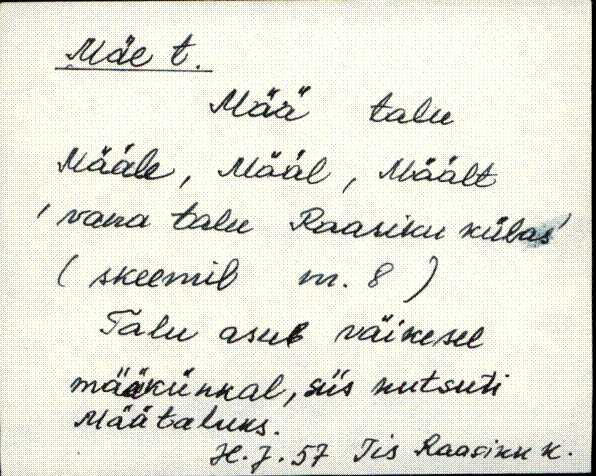 Mäe t.
Mää talu
Määle, Määl, Mäält
'vana talu Raasiku külas'
(skeemil nr. 8)
Talu asub väikesel
määkünkal, siis kutsuti
Määtaluks.
H. J. 57 Jis Raasiku k.